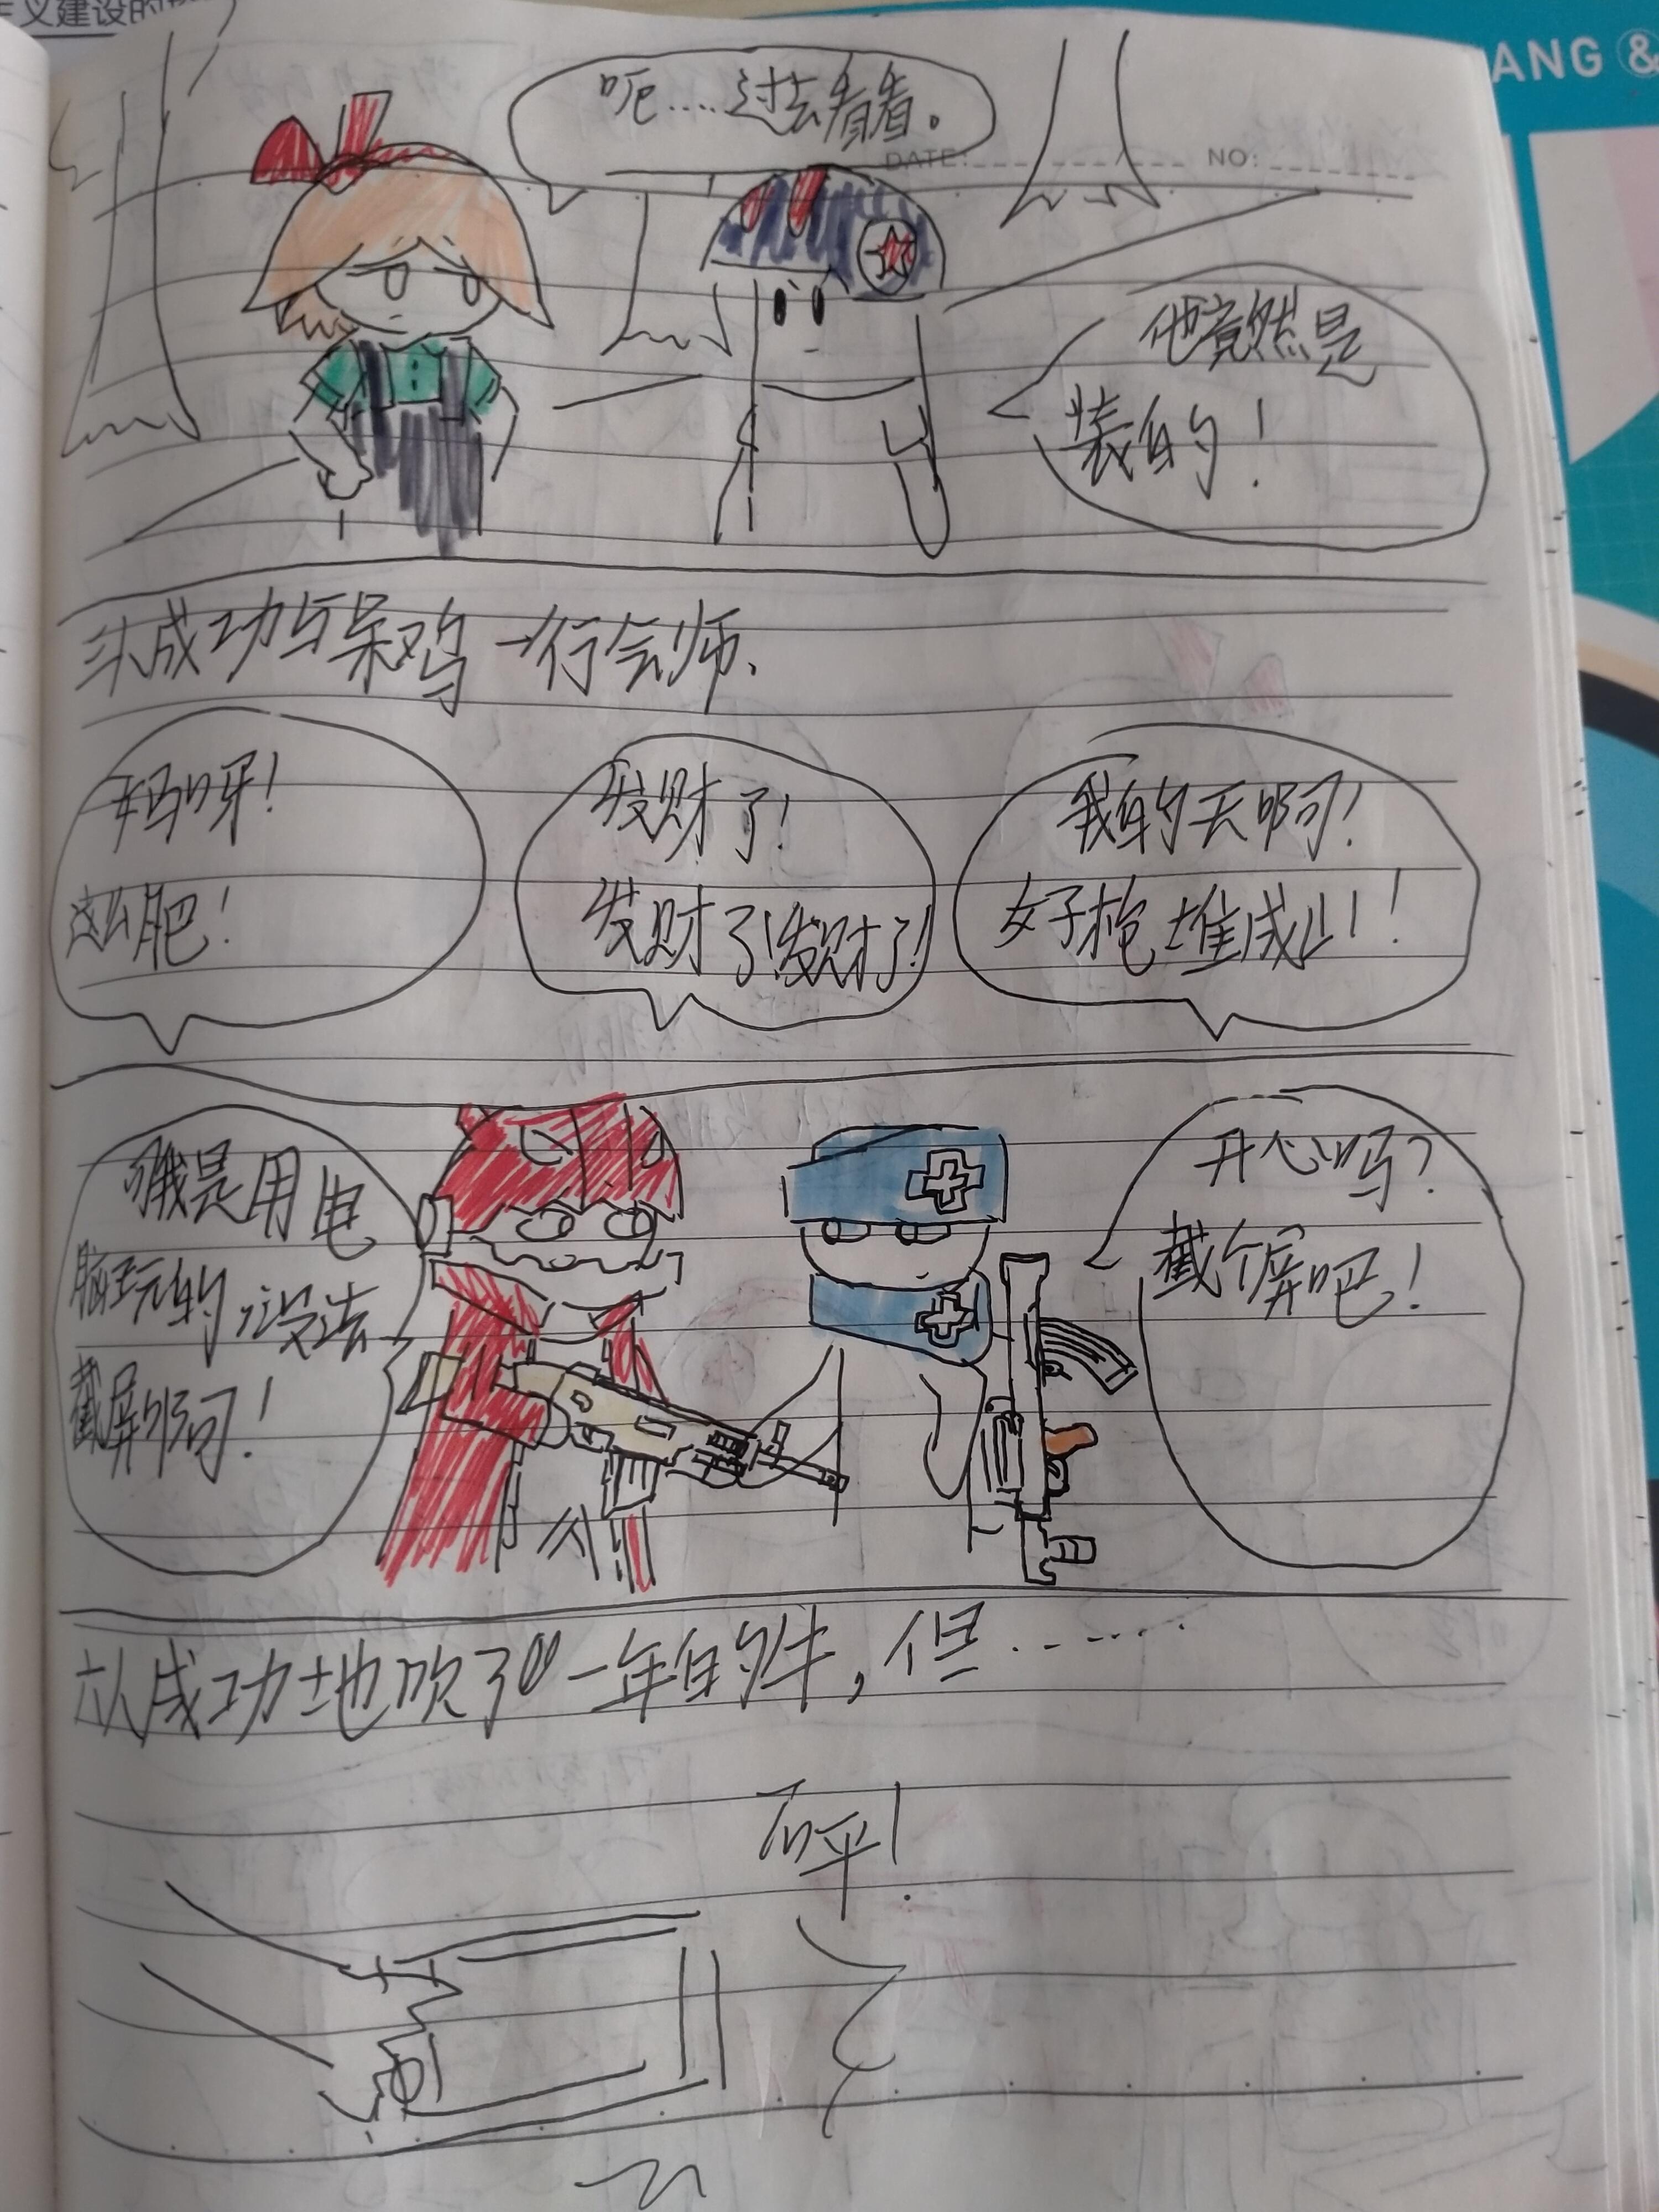 义建设的
ANG &
呃……过去看看。
DATE: NO:
他竟然是
装的！
成功与呆鸡一行会师、
妈呀！
这么肥！
发财了！
发财了！发财了！
我的天啊！
好枪堆成山！
可我是用电
脑玩的，没法
截屏的啊！
开心吗？
截个屏吧！
成功地吹了一年的牛，但……
砰！